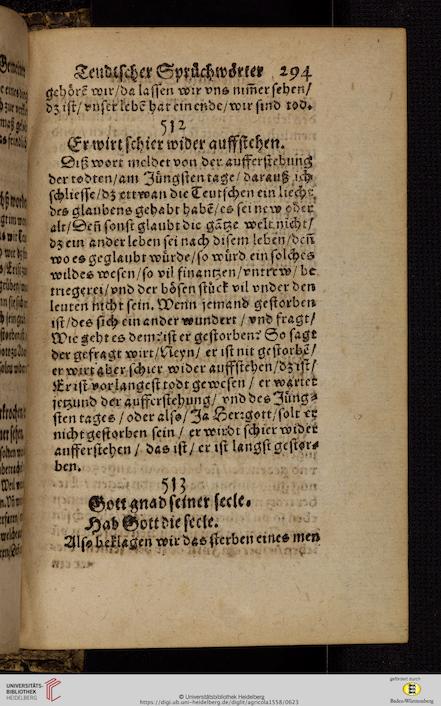 Teudtscher Sprüchwörter 294
gehörẽ wir/da lassen wir vns nim̃er sehen/
dz ist/vnser lebẽ hat ein ende/wir sind tod.
512
Er wirt schier wider aufferstehen.
Diß wort meldet von der aufferstehung
der todten/am Jüngsten tage/darauß ich
schliesse/dz ettwan die Teutschen ein liecht
des glaubens gehabt habẽ/es sei new oder
alt/Deñ sonst glaubt die gãtze welt nicht/
dz ein ander leben sei nach disem leben/deñ
wo es geglaubt würde/so würd ein solches
wildes wesen/so vil finantzen/vntrew/be
triegerei/vnd der bösen stück vil vnder den
leuten nicht sein. Wenn jemand gestorben
ist/des sich ein ander wundert/vnd fragt/
Wie geht es dem? ist er gestorben? So sagt
der gefragt wirt/Neyn/er ist nit gestorbẽ/
er wirt aber schier wider auffstehen/dz ist/
Er ist vorlangest todt gewesen/er wartet
jetzund der aufferstehung/vnd des Jüng-
sten tages/oder also/Ja Herrgott/solt er
nicht gestorben sein/er wirdt schier wider
aufferstehen/das ist/er ist langst gestor-
ben.
513
Gott gnad seiner seele.
Hab Gott die seele.
Also beklagen wir das sterben eines men
UNIVERSITÄTS-
BIBLIOTHEK
HEIDELBERG
© Universitätsbibliothek Heidelberg
https://digi.ub.uni-heidelberg.de/diglit/agricola1558/0623
gefördert durch
Baden-Württemberg